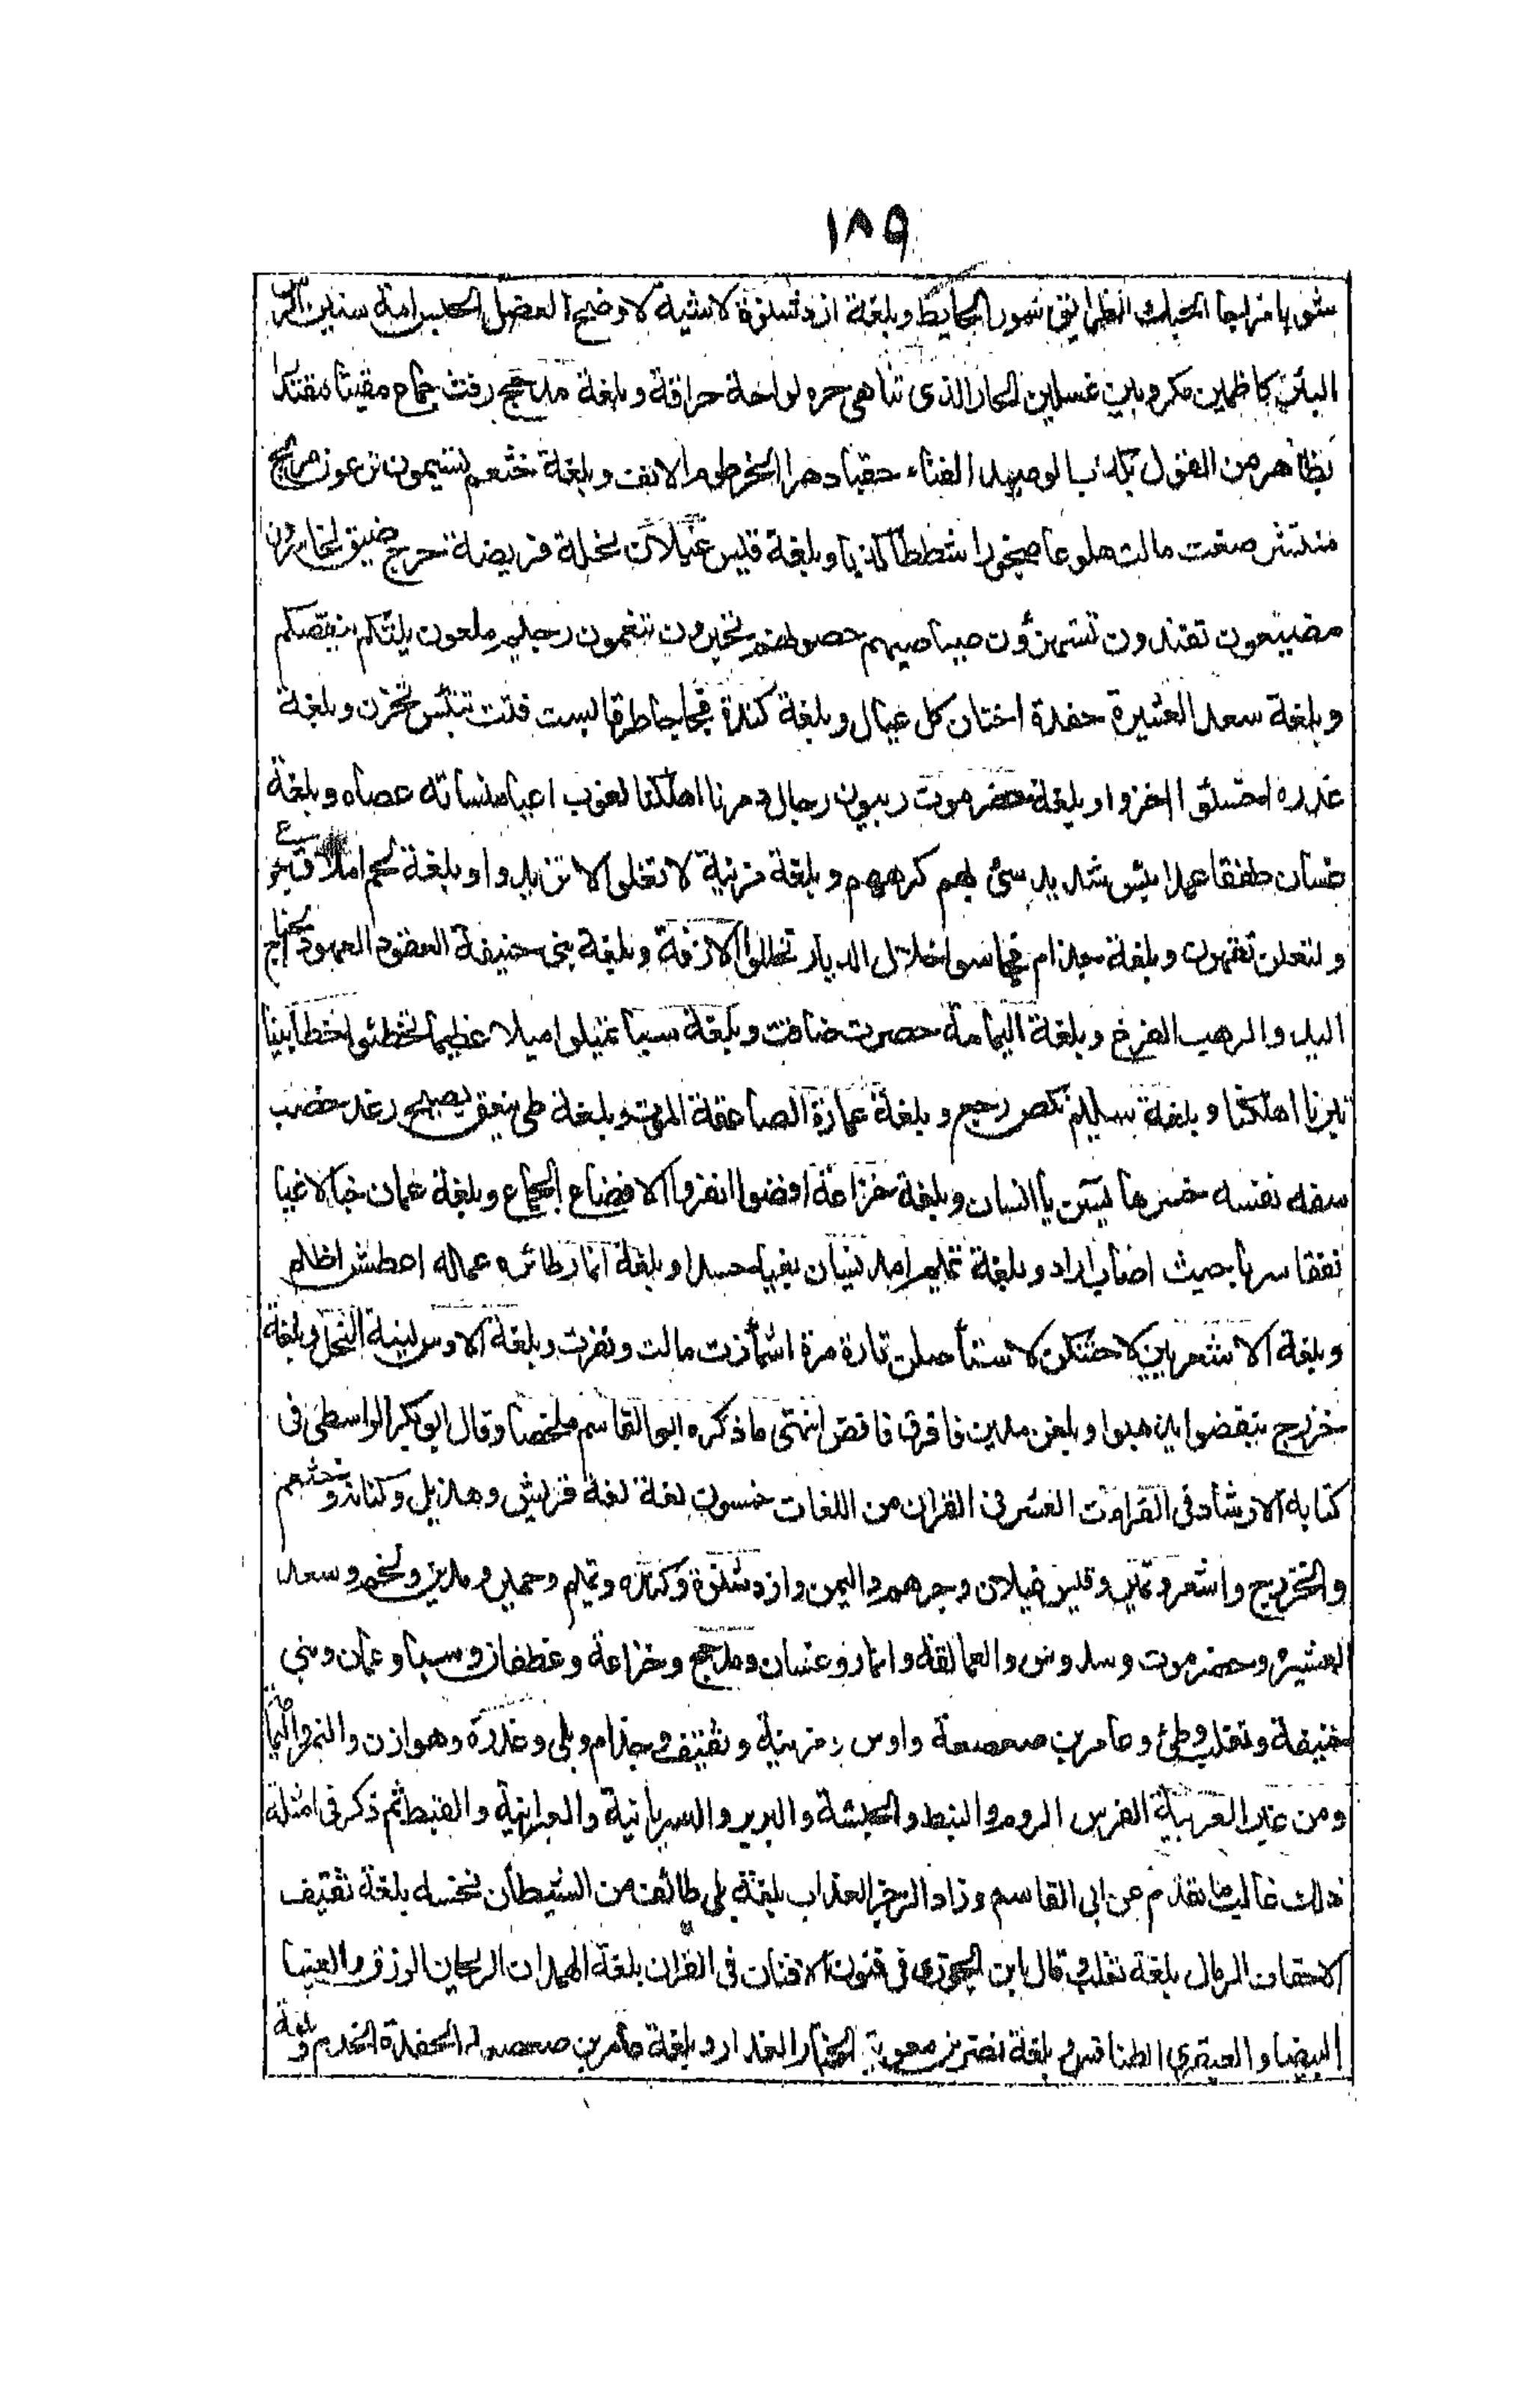 ١٨٩
شوبا مزاجا الحبك الطرائق سور الحايط وبلغة ازدشنؤة لا شية لا وضح العضل الحبس امة سنين الرس
البئر كاظمين مكروبين غسلين الحار الذى تناهى حره لواحة حراقة وبلغة مذحج رفث جماع مقيتا مقتدرا
بظاهر من القول بكذب بالوصيد الفناء حقبا دهرا الخرطوم الانف وبلغة خثعم تسيمون ترعون مريج
منتشر صغت مالت هلوعا ضجورا شططا كذبا وبلغة قيس عيلان نحلة فريضة حرج ضيق لخاسرون
مضيعون تفندون تستهزؤن صياصيهم حصونهم تحبرون تنعمون رجيم ملعون يلتكم ينقصكم
وبلغة سعد العشيرة حفدة اختان كل عيال وبلغة كندة فجاجا طرقا بست فتت تبتئس تحزن وبلغة
عذرة اخسئوا اخزوا وبلغة حضرموت ربيون رجال دمرنا اهلكنا لغوب اعيا منسأته عصاه وبلغة
غسان طفقا عمدا بئيس شديد سئ بهم كرههم وبلغة مزينة لا تغلوا لا تزيدوا وبلغة لخم املاق جوع
ولتعلن تقهرن وبلغة جذام فجاسوا خلال الديار تخللوا الازقة وبلغة بنى حنيفة العقود العهود الجناح
اليد والرهب الفزع وبلغة اليمامة حصرت ضاقت وبلغة سبأ تميلوا ميلا عظيما تخطئوا خطا بينا
تبرنا اهلكنا وبلغة سليم نكص رجع وبلغة عمارة الصاعقة الموت وبلغة طى ينعق يصيح رغدا خصب
سفه نفسه خسرها يس يا انسان وبلغة خزاعة افيضوا انفروا الافضاء الجماع وبلغة عمان خبالا غيا
نفقا سربا حيث اصاب اراد وبلغة تميم امد نسيان بغيا حسدا وبلغة انمار طائره عماله اغطش اظلم
وبلغة الاشعريين لاحتنكن لاستأصلن تارة مرة اشمأزت مالت ونفرت وبلغة الاوس لينة النخل وبلغة
خزرج ينفضوا يذهبوا وبلغة مدين فافرق فاقض انتهى ما ذكره ابو القاسم ملخصا وقال ابو بكر الواسطى فى
كتابه الارشاد فى القراءت العشر فى القران من اللغات خمسون لغة لغة قريش وهذيل وكنانة وخثعم
والخزرج واشعر ونمير وقيس غيلان وجرهم واليمن وازدشنؤة وكندة وتميم وحمير ومدين ولخم وسعد
العشيرة وحضرموت وسدوس والعمالقة وانمار وغسان ومذحج وخزاعة وغطفان وسبأ وعمان وبنى
حنيفة وتغلب وطئ وعامر بن صعصعة واوس ومزينة وثقيف وجذام وبلى وعذرة وهوازن والنمر واليمامة
ومن غير العربية الفرس الروم والنبط والحبشة والبربر والسريانية والعبرانية والقبط ثم ذكر فى امثلة
ذلك غالب ما تقدم عن ابى القاسم وزاد الرجز العذاب بلغة بلى طائف من الشيطان نخسه بلغة ثقيف
الاحقاف الرمال بلغة تغلب وقال ابن الجوزى فى فنون الافنان فى القران بلغة الهمدان الريحان الرزق والعينا
البيضا والعبقرى الطنافس وبلغة نصر بن معوية الختار الغدار وبلغة عامر بن صعصعة الحفدة الخدم وبلغة